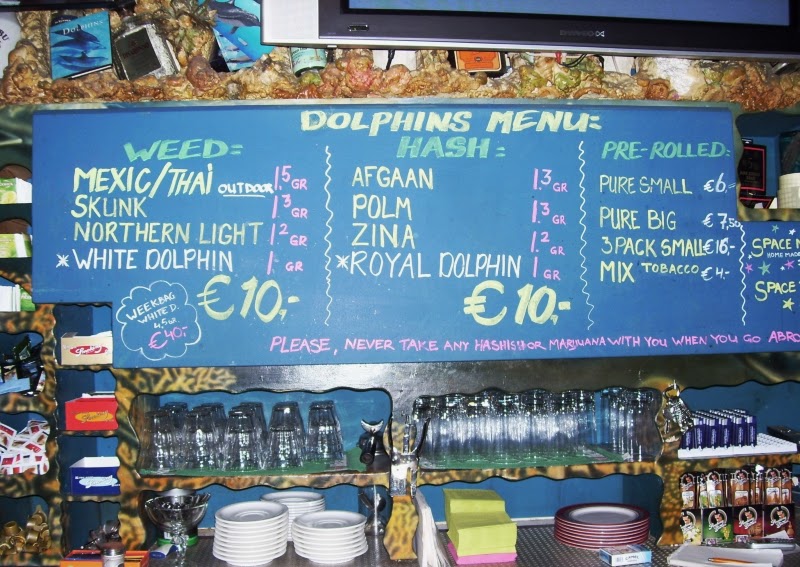 DOLPHINS
DOLPHINS MENU:
WEED:
MEXIC/THAI OUTDOOR 1.5 GR
SKUNK 1.3 GR
NORTHERN LIGHT 1.2 GR
*WHITE DOLPHIN 1 GR
€10,-
WEEKBAG
WHITE D.
4,5 GR
€40,-
HASH:
AFGAAN 1.3 GR
POLM 1.3 GR
ZINA 1.2 GR
*ROYAL DOLPHIN 1 GR
€10,-
PRE-ROLLED:
PURE SMALL €6,-
PURE BIG €7,50
3 PACK SMALL €16,-
MIX TOBACCO €4,-
SPACE
HOME MADE
SPACE
PLEASE, NEVER TAKE ANY HASHISH OR MARIJUANA WITH YOU WHEN YOU GO ABRO